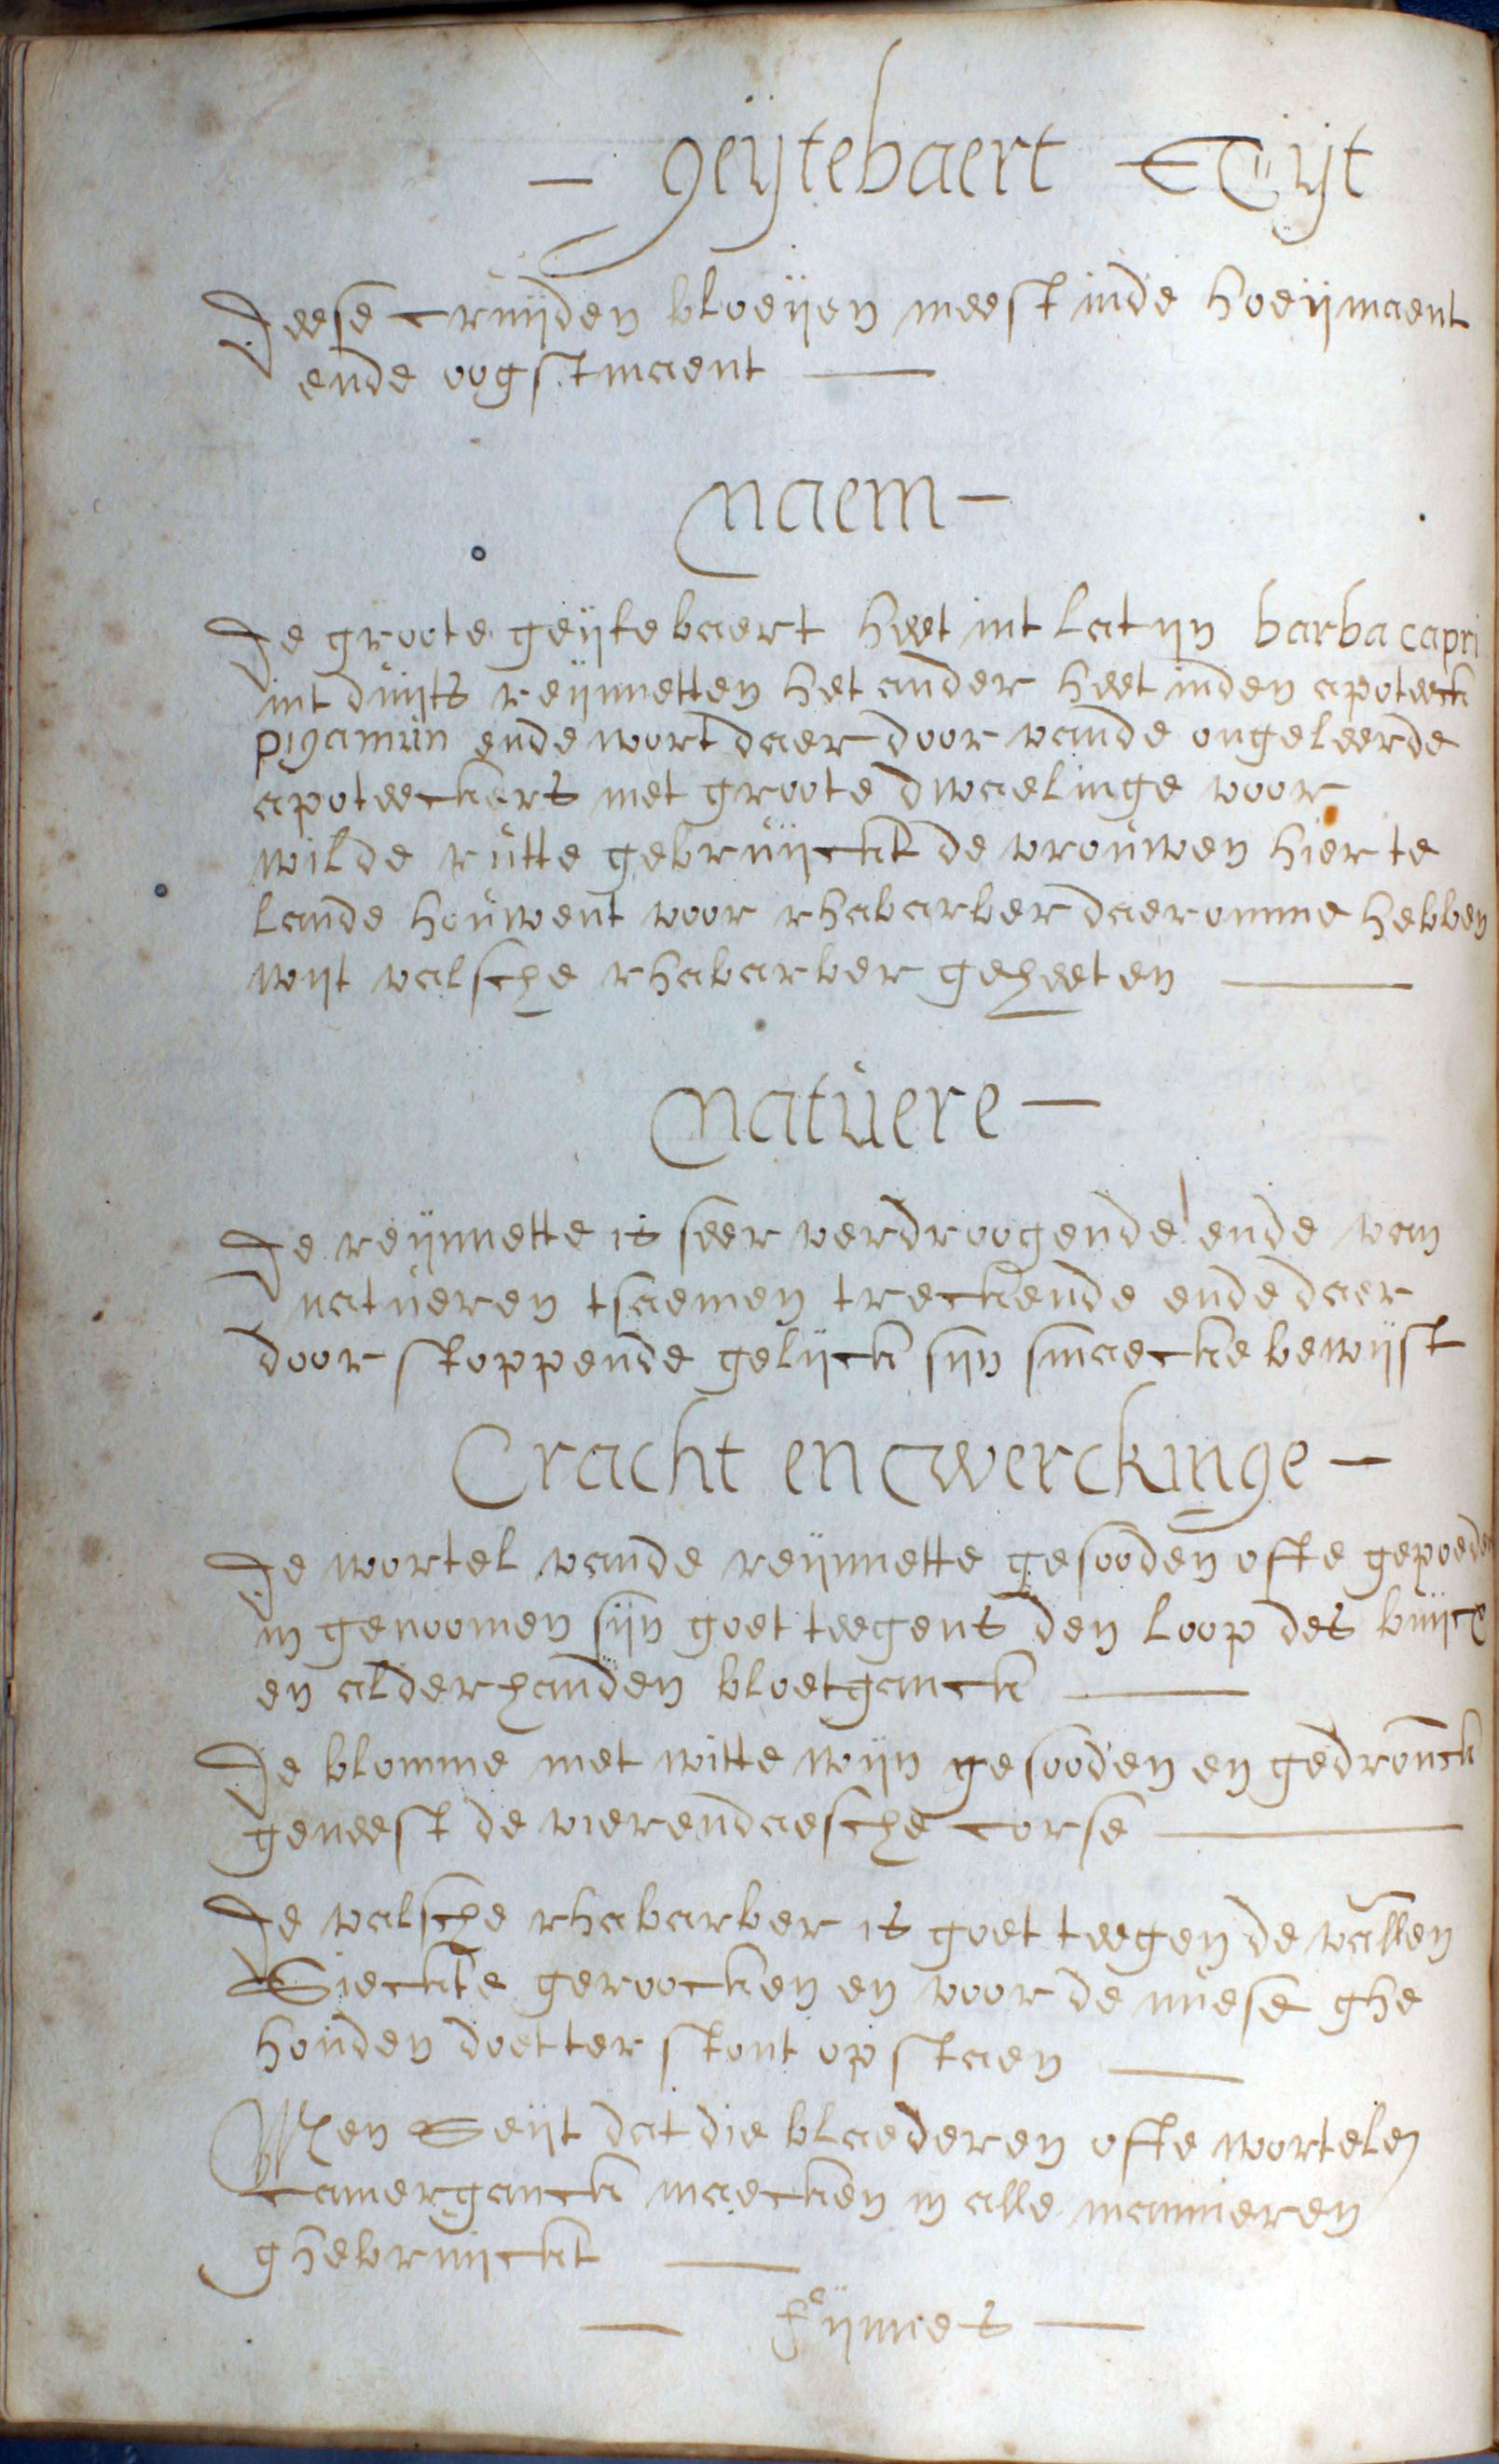 — geijtebaert Tijt
Deese cruijden bloeijen meest inde hoeijmaent
ende oogstmaent —
naem —
De groote geijtebaert heet int latijn barba capri
int duijts reijnnetten het ander heet inden apoteeck
pigamùn ende wort daer door vande ongeleerde
apoteeckers met groote dwaelinge voor
wilde rùtte gebruijckt de vroùwen hier te
lande hoùwent voor rhabarber daeromme hebben
wijt valsche rhabarber geheeten —
natùere —
De reijnnette is seer verdroogende ende van
natùeren tsaemen treckende ende daer
door stoppende gelijck sijn smaecke bewijst
Cracht en werckinge —
De wortel vande reijnnette gesooden ofte gepoeden
in genoomen sijn goet teegens den loop des buijcx
en alderhanden bloetganck —
De blomme met witte wijn gesooden en gedronck
geneest de vierendaesche corse —
De valsche rhabarber is goet teegen de vallen
Sieckte geroocken en voor de nuese ghe
houden doet ter stont op staen —
Men Seijt dat die blaederen ofte wortelen
camerganck maecken in alle mannieren
ghebruijckt —